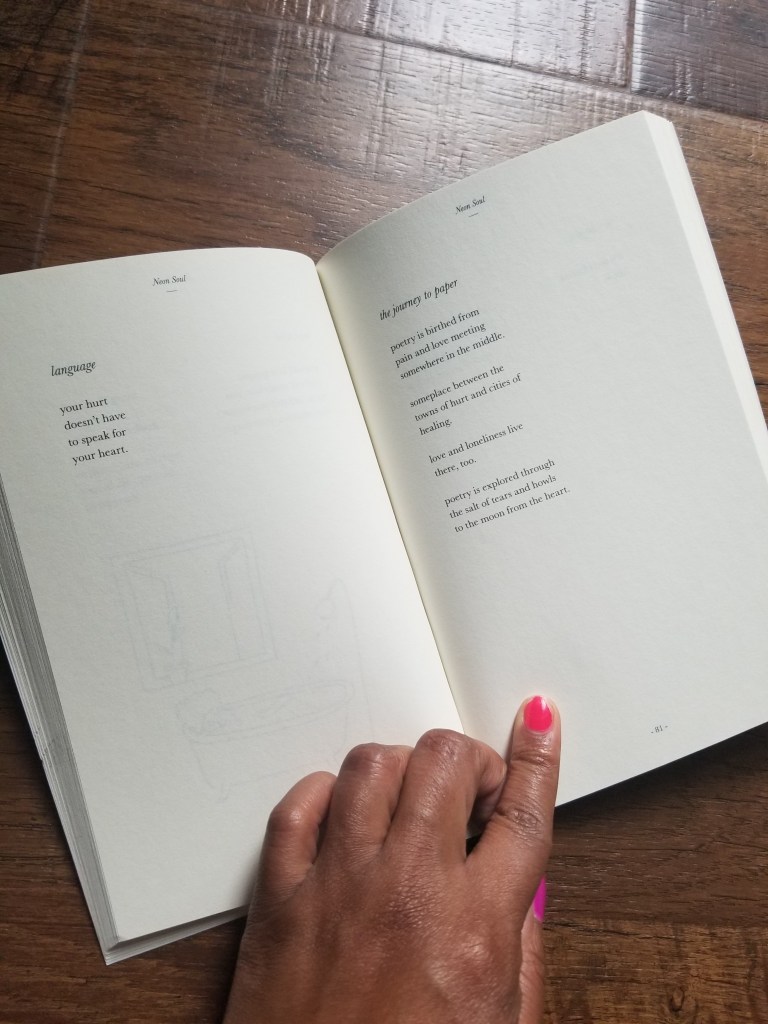 Neon Soul
language
your hurt
doesn't have
to speak for
your heart.
Neon Soul
the journey to paper
poetry is birthed from
pain and love meeting
somewhere in the middle.
someplace between the
towns of hurt and cities of
healing.
love and loneliness live
there, too.
poetry is explored through
the salt of tears and howls
to the moon from the heart.
- 81 -